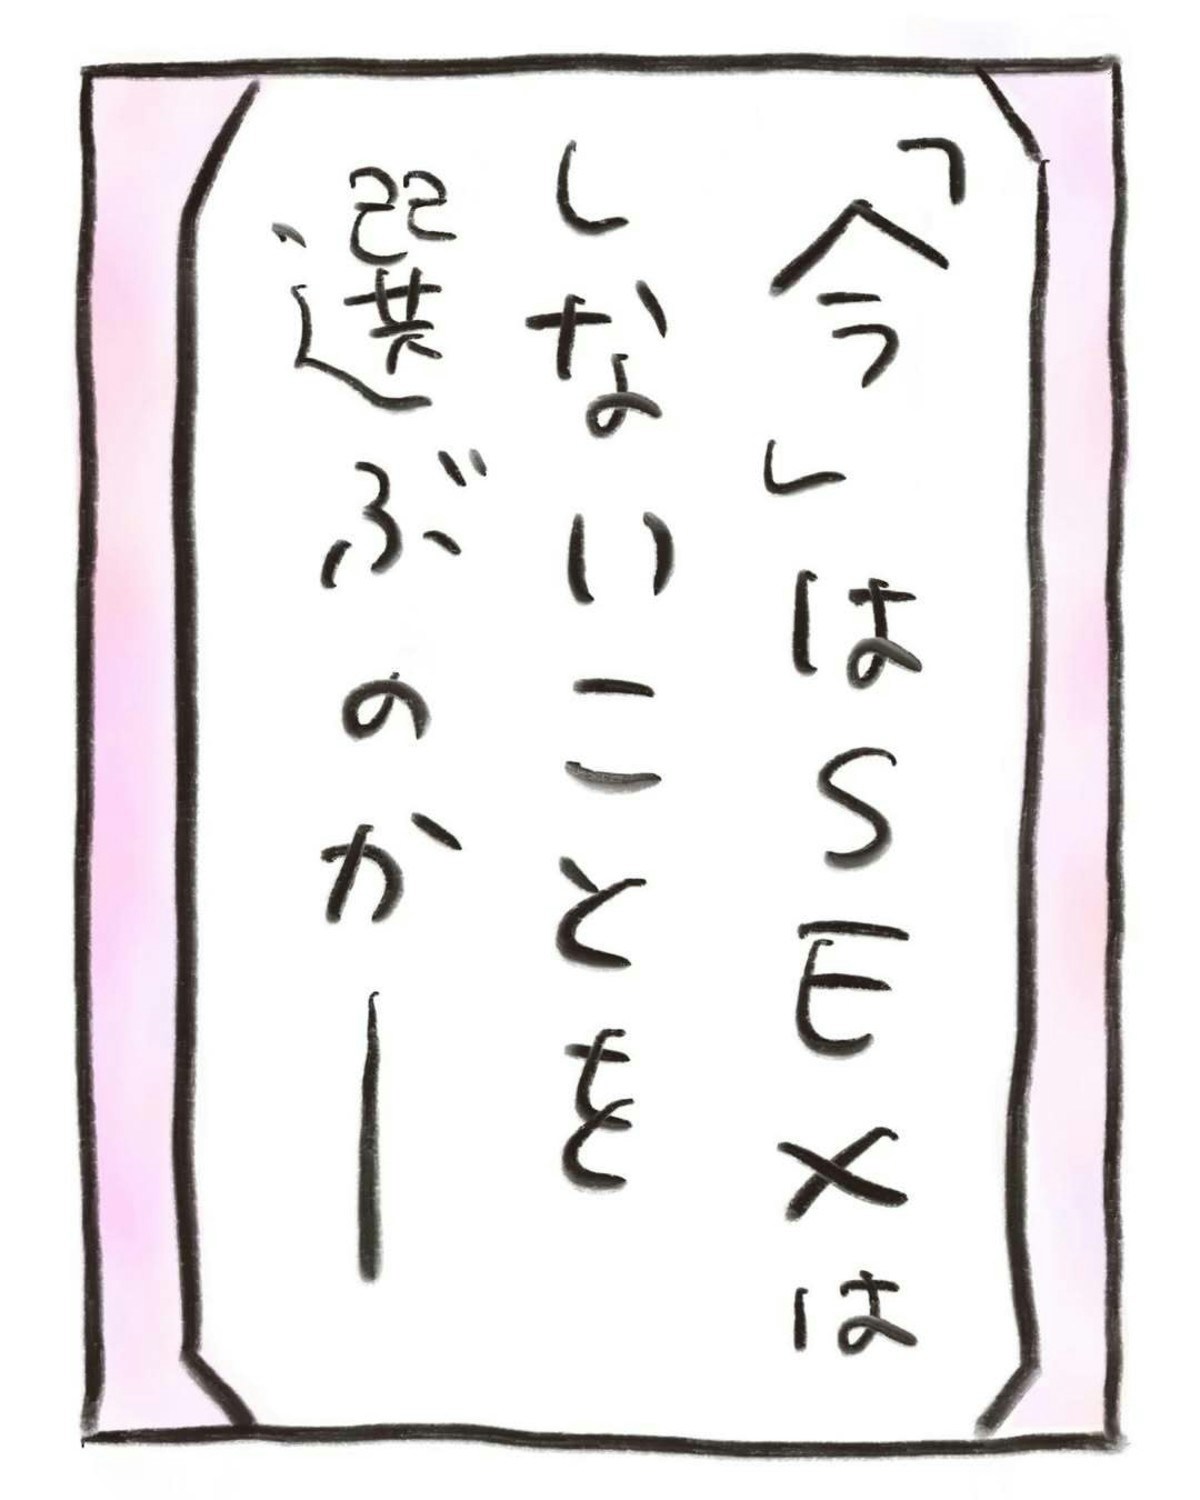 「今」はSEXは
しないことを
選ぶのかー